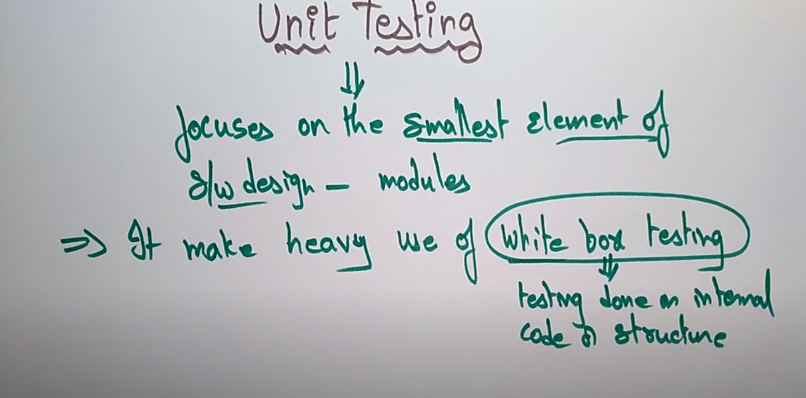 Unit Testing
focuses on the smallest element of
s/w design - modules
⇒ It make heavy use of white box testing
testing done on internal
code & structure